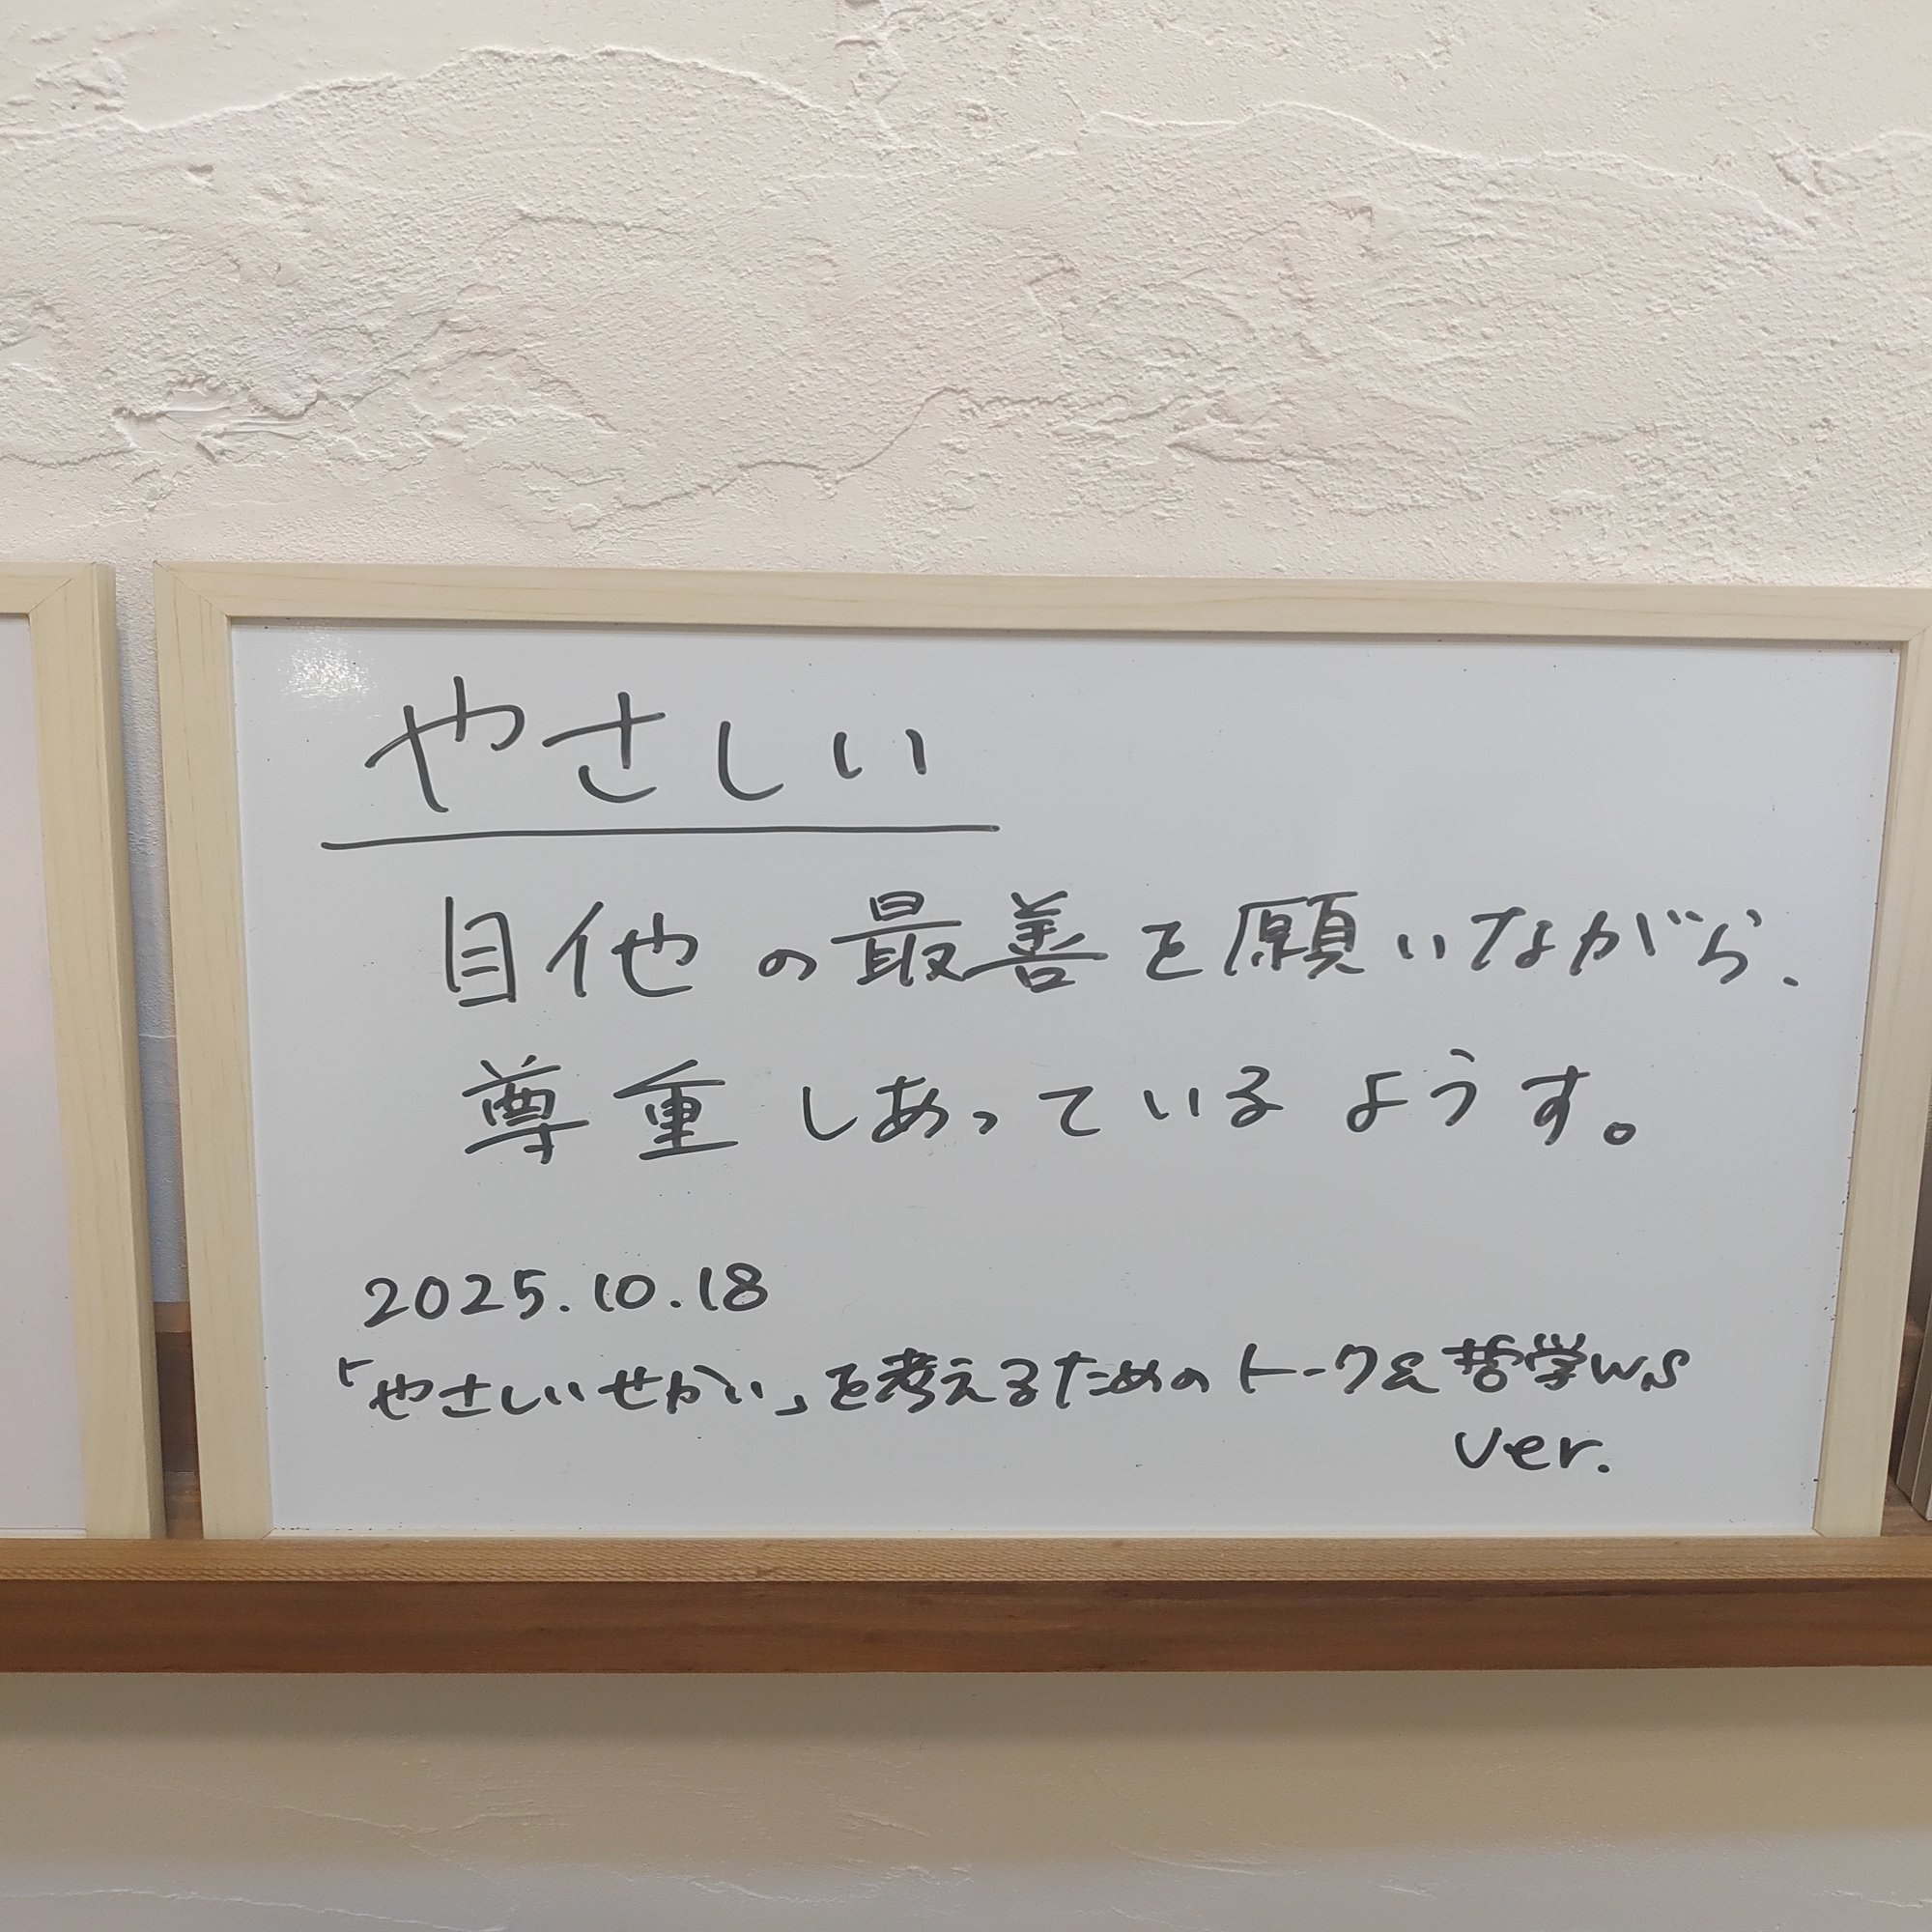 やさしい
自他の最善を願いながら、
尊重しあっているようす。
2025.10.18
「やさしいせかい」を考えるためのトーク&哲学WS
ver.